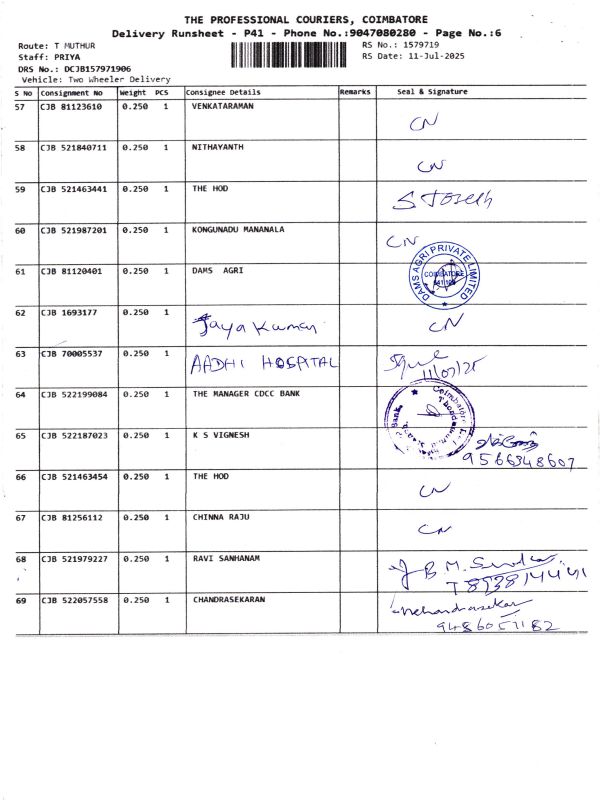 THE PROFESSIONAL COURIERS, COIMBATORE
Delivery Runsheet - P41 - Phone No.:9047080280 - Page No.:6
Route: T MUTHUR RS No.: 1579719
Staff: PRIYA RS Date: 11-Jul-2025
DRS No.: DCJB157971906
Vehicle: Two Wheeler Delivery
S No Consignment No Weight PCS Consignee Details Remarks Seal & Signature
57 CJB 81123610 0.250 1 VENKATARAMAN
CN
58 CJB 521840711 0.250 1 NITHAYANTH
CN
59 CJB 521463441 0.250 1 THE HOD
S Joseph
60 CJB 521987201 0.250 1 KONGUNADU MANANALA
CN
61 CJB 81120401 0.250 1 DAMS AGRI
DAMS AGRI PRIVATE LIMITED
COIMBATORE
62 CJB 1693177 0.250 1
Jaya Kumar CN
63 CJB 70005537 0.250 1 AADHI HOSPITAL
11/07/25
64 CJB 522199084 0.250 1 THE MANAGER CDCC BANK
Coimbatore
Bank
65 CJB 522187023 0.250 1 K S VIGNESH
9566348607
66 CJB 521463454 0.250 1 THE HOD
CN
67 CJB 81256112 0.250 1 CHINNA RAJU
CN
68 CJB 521979227 0.250 1 RAVI SANHANAM
B M.
69 CJB 522057558 0.250 1 CHANDRASEKARAN
chandrasekar